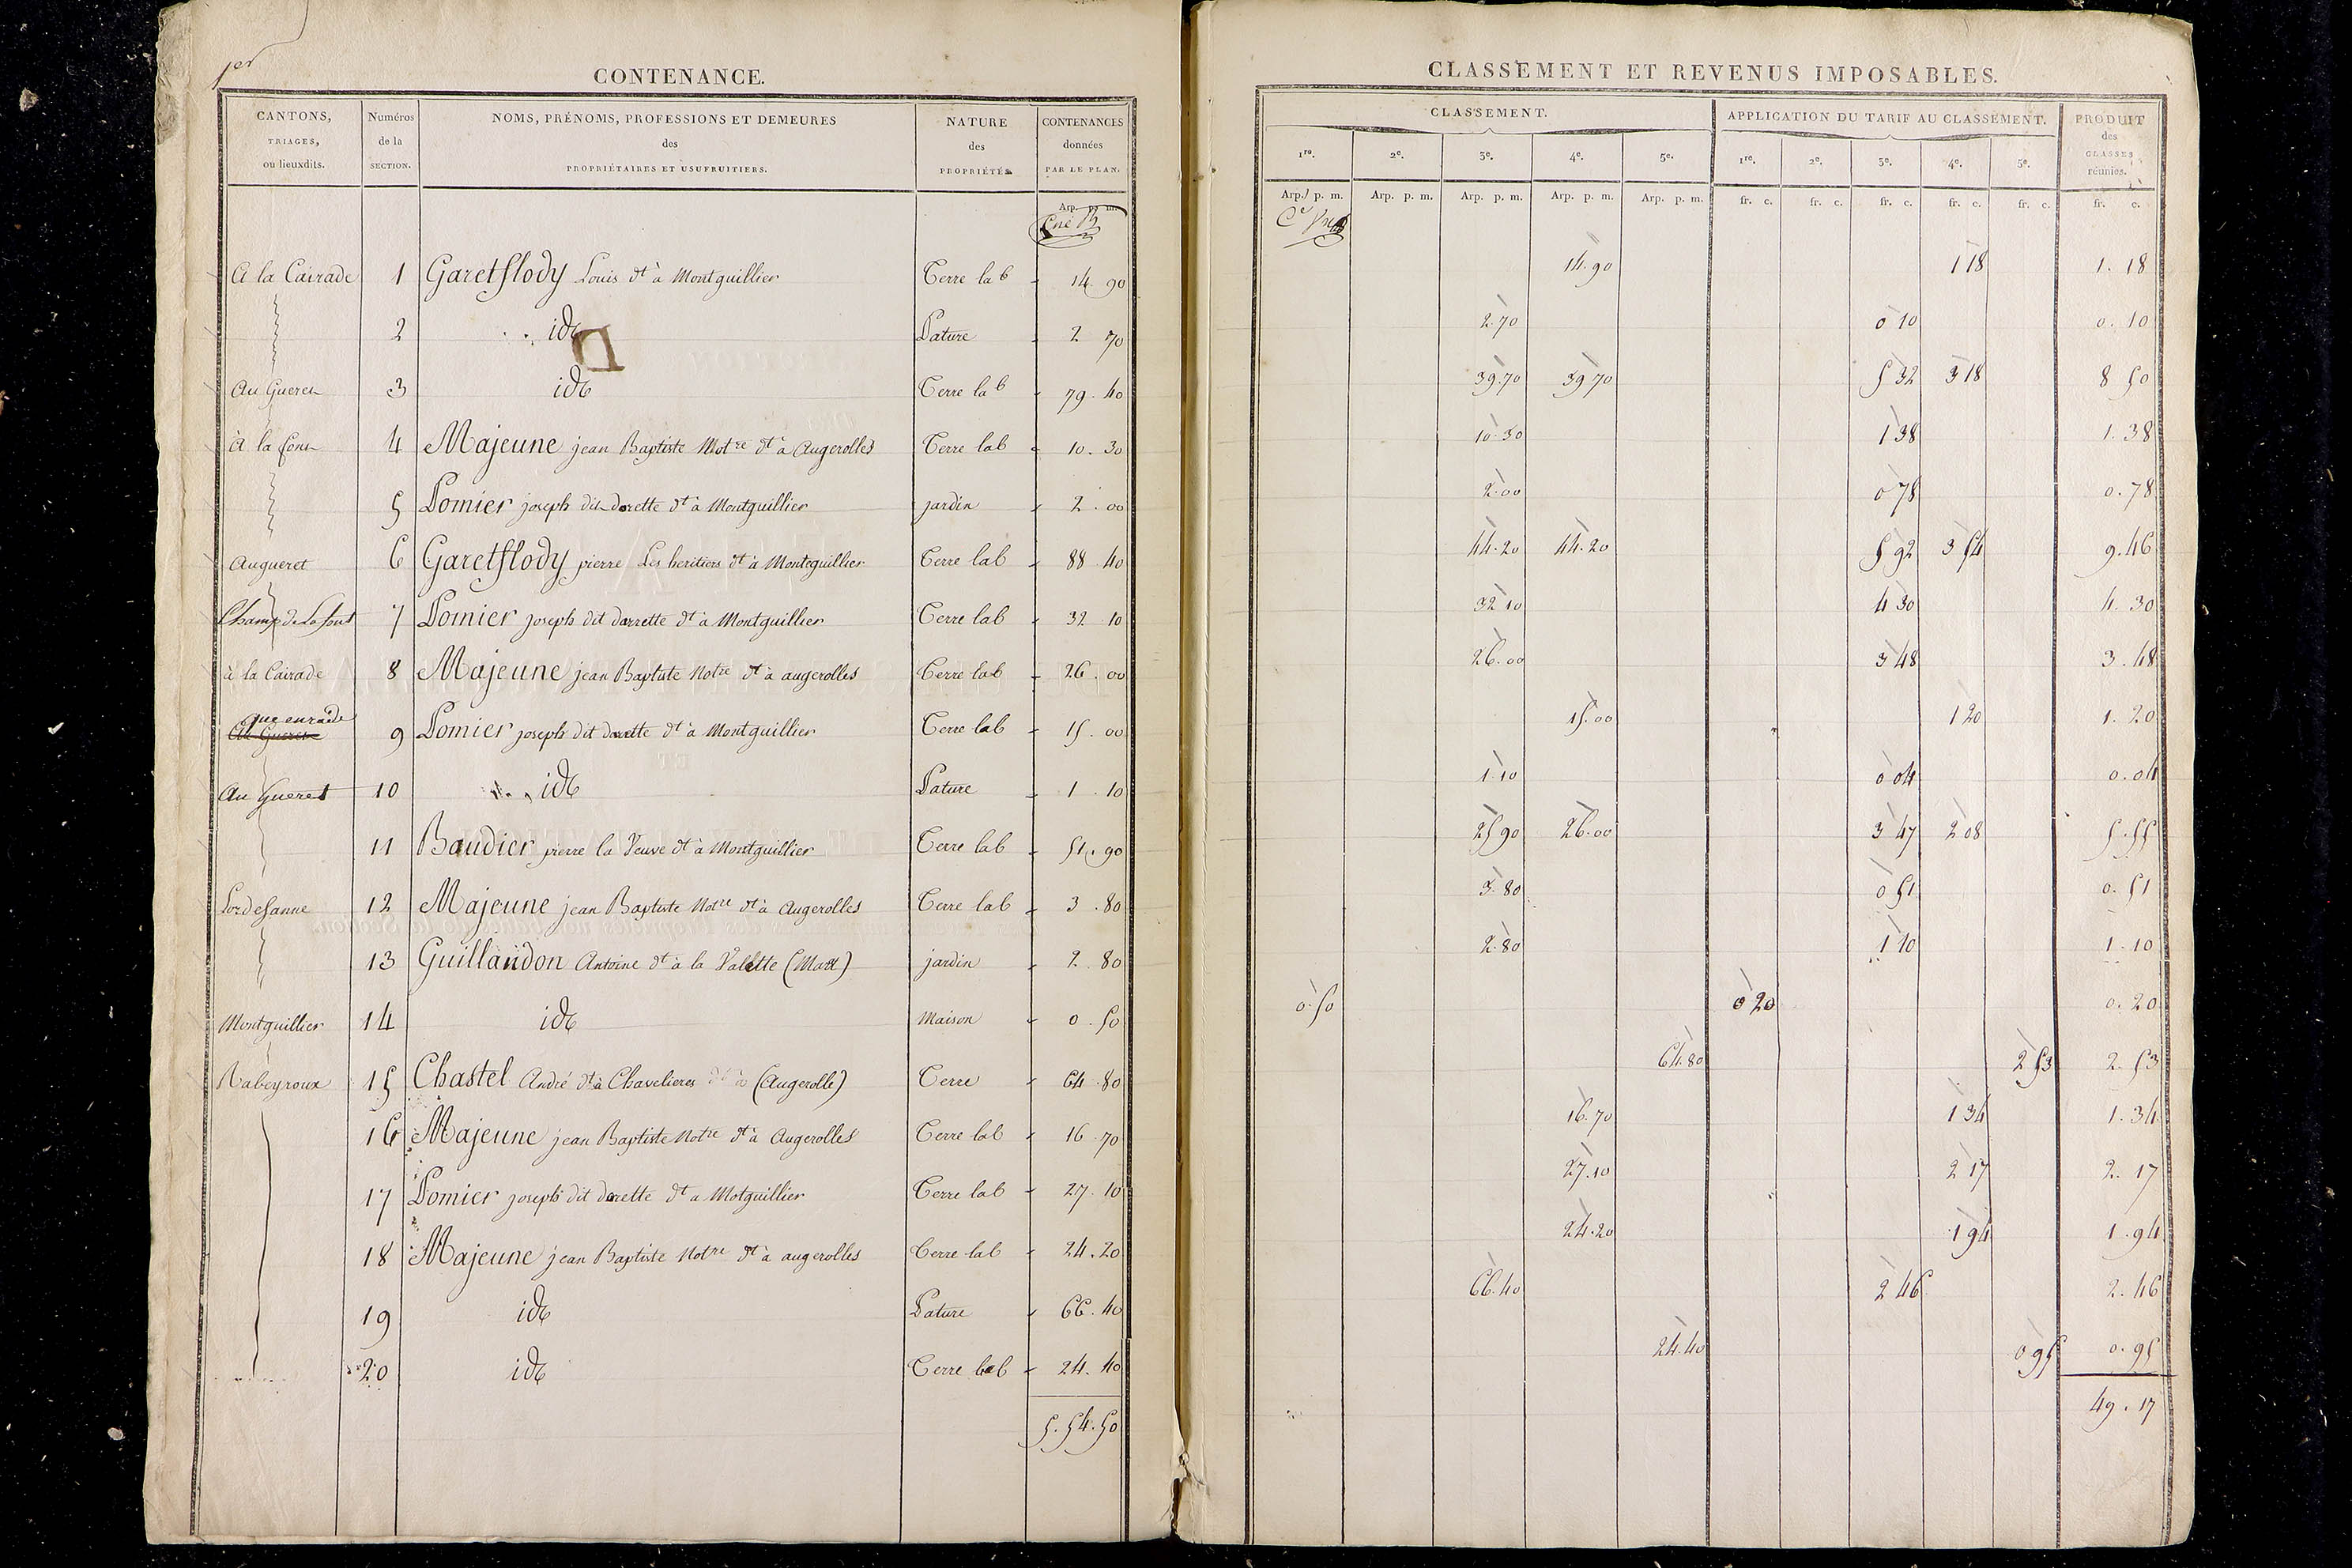 1er
CONTENANCE.
CANTONS, TRIAGES, ou lieuxdits. Numéros de la SECTION. NOMS, PRÉNOMS, PROFESSIONS ET DEMEURES des PROPRIÉTAIRES ET USUFRUITIERS. NATURE des PROPRIÉTÉS CONTENANCES données PAR LE PLAN.
Arp. p. m.
A la Cairade 1 Garetflody Louis dt à Montguillier Terre lab 14 90
2 id Pature 2 70
Au Gueret 3 id Terre lab 79. 40
à la font 4 Majeune jean Baptiste Notre dt à Augerolles Terre lab 10. 30
5 Pomier joseph dit darette dt à Montguillier jardin 2. 00
Augueret 6 Garetflody pierre Les heritiers dt à Monteguillier Terre lab 88 40
Champ de La font 7 Pomier joseph dit darrette dt à Montguillier Terre lab 32 10
à la Cairade 8 Majeune jean Baptiste Notre dt à augerolles Terre lab 26. 00
Au Gueret 9 Pomier joseph dit darette dt à Montguillier Terre lab 15. 00
Au Gueret 10 id Pature 1. 10
11 Baudier pierre la Veuve dt à Montguillier Terre lab 51. 90
12 Majeune jean Baptiste Notre dt à Augerolles Terre lab 3. 80
13 Guillaudon Antoine dt à la Valette jardin 2. 80
Montguillier 14 id Maison 0. 50
Rabeyroux 15 Chastel André dt à Chavelieres (Augerolle) Terre 64. 80
16 Majeune jean Baptiste Notre dt à Augerolles Terre lab 16. 70
17 Pomier joseph dit darette dt a Motguillier Terre lab 27. 10
18 Majeune jean Baptiste Notre dt à augerolles Terre lab 24. 20
19 id Pature 66. 40
20 id Terre lab 24. 40
5. 54. 50
CLASSEMENT ET REVENUS IMPOSABLES.
CLASSEMENT. APPLICATION DU TARIF AU CLASSEMENT. PRODUIT des CLASSES réunies.
1re. 2e. 3e. 4e. 5e. 1re. 2e. 3e. 4e. 5e.
Arp. p. m. Arp. p. m. Arp. p. m. Arp. p. m. Arp. p. m. fr. c. fr. c. fr. c. fr. c. fr. c. fr. c.
14. 90 1 18 1. 18
2. 70 0 10 0. 10
39. 70 39 70 5 32 3 18 8 50
10. 30 1 38 1. 38
2. 00 0 78 0. 78
44. 20 44. 20 5 92 3 54 9. 46
32 10 4 30 4. 30
26. 00 3 48 3. 48
15. 00 1 20 1. 20
1. 10 0 04 0. 04
25 90 26. 00 3 47 2 08 5. 55
3. 80 0 51 0. 51
2. 80 1 10 1. 10
0. 50 0 20 0. 20
64. 80 2 53 2. 53
16. 70 1 34 1. 34
27. 10 2 17 2. 17
24. 20 1 94 1. 94
66. 40 2 46 2. 46
24. 40 0 95 0. 95
49. 17